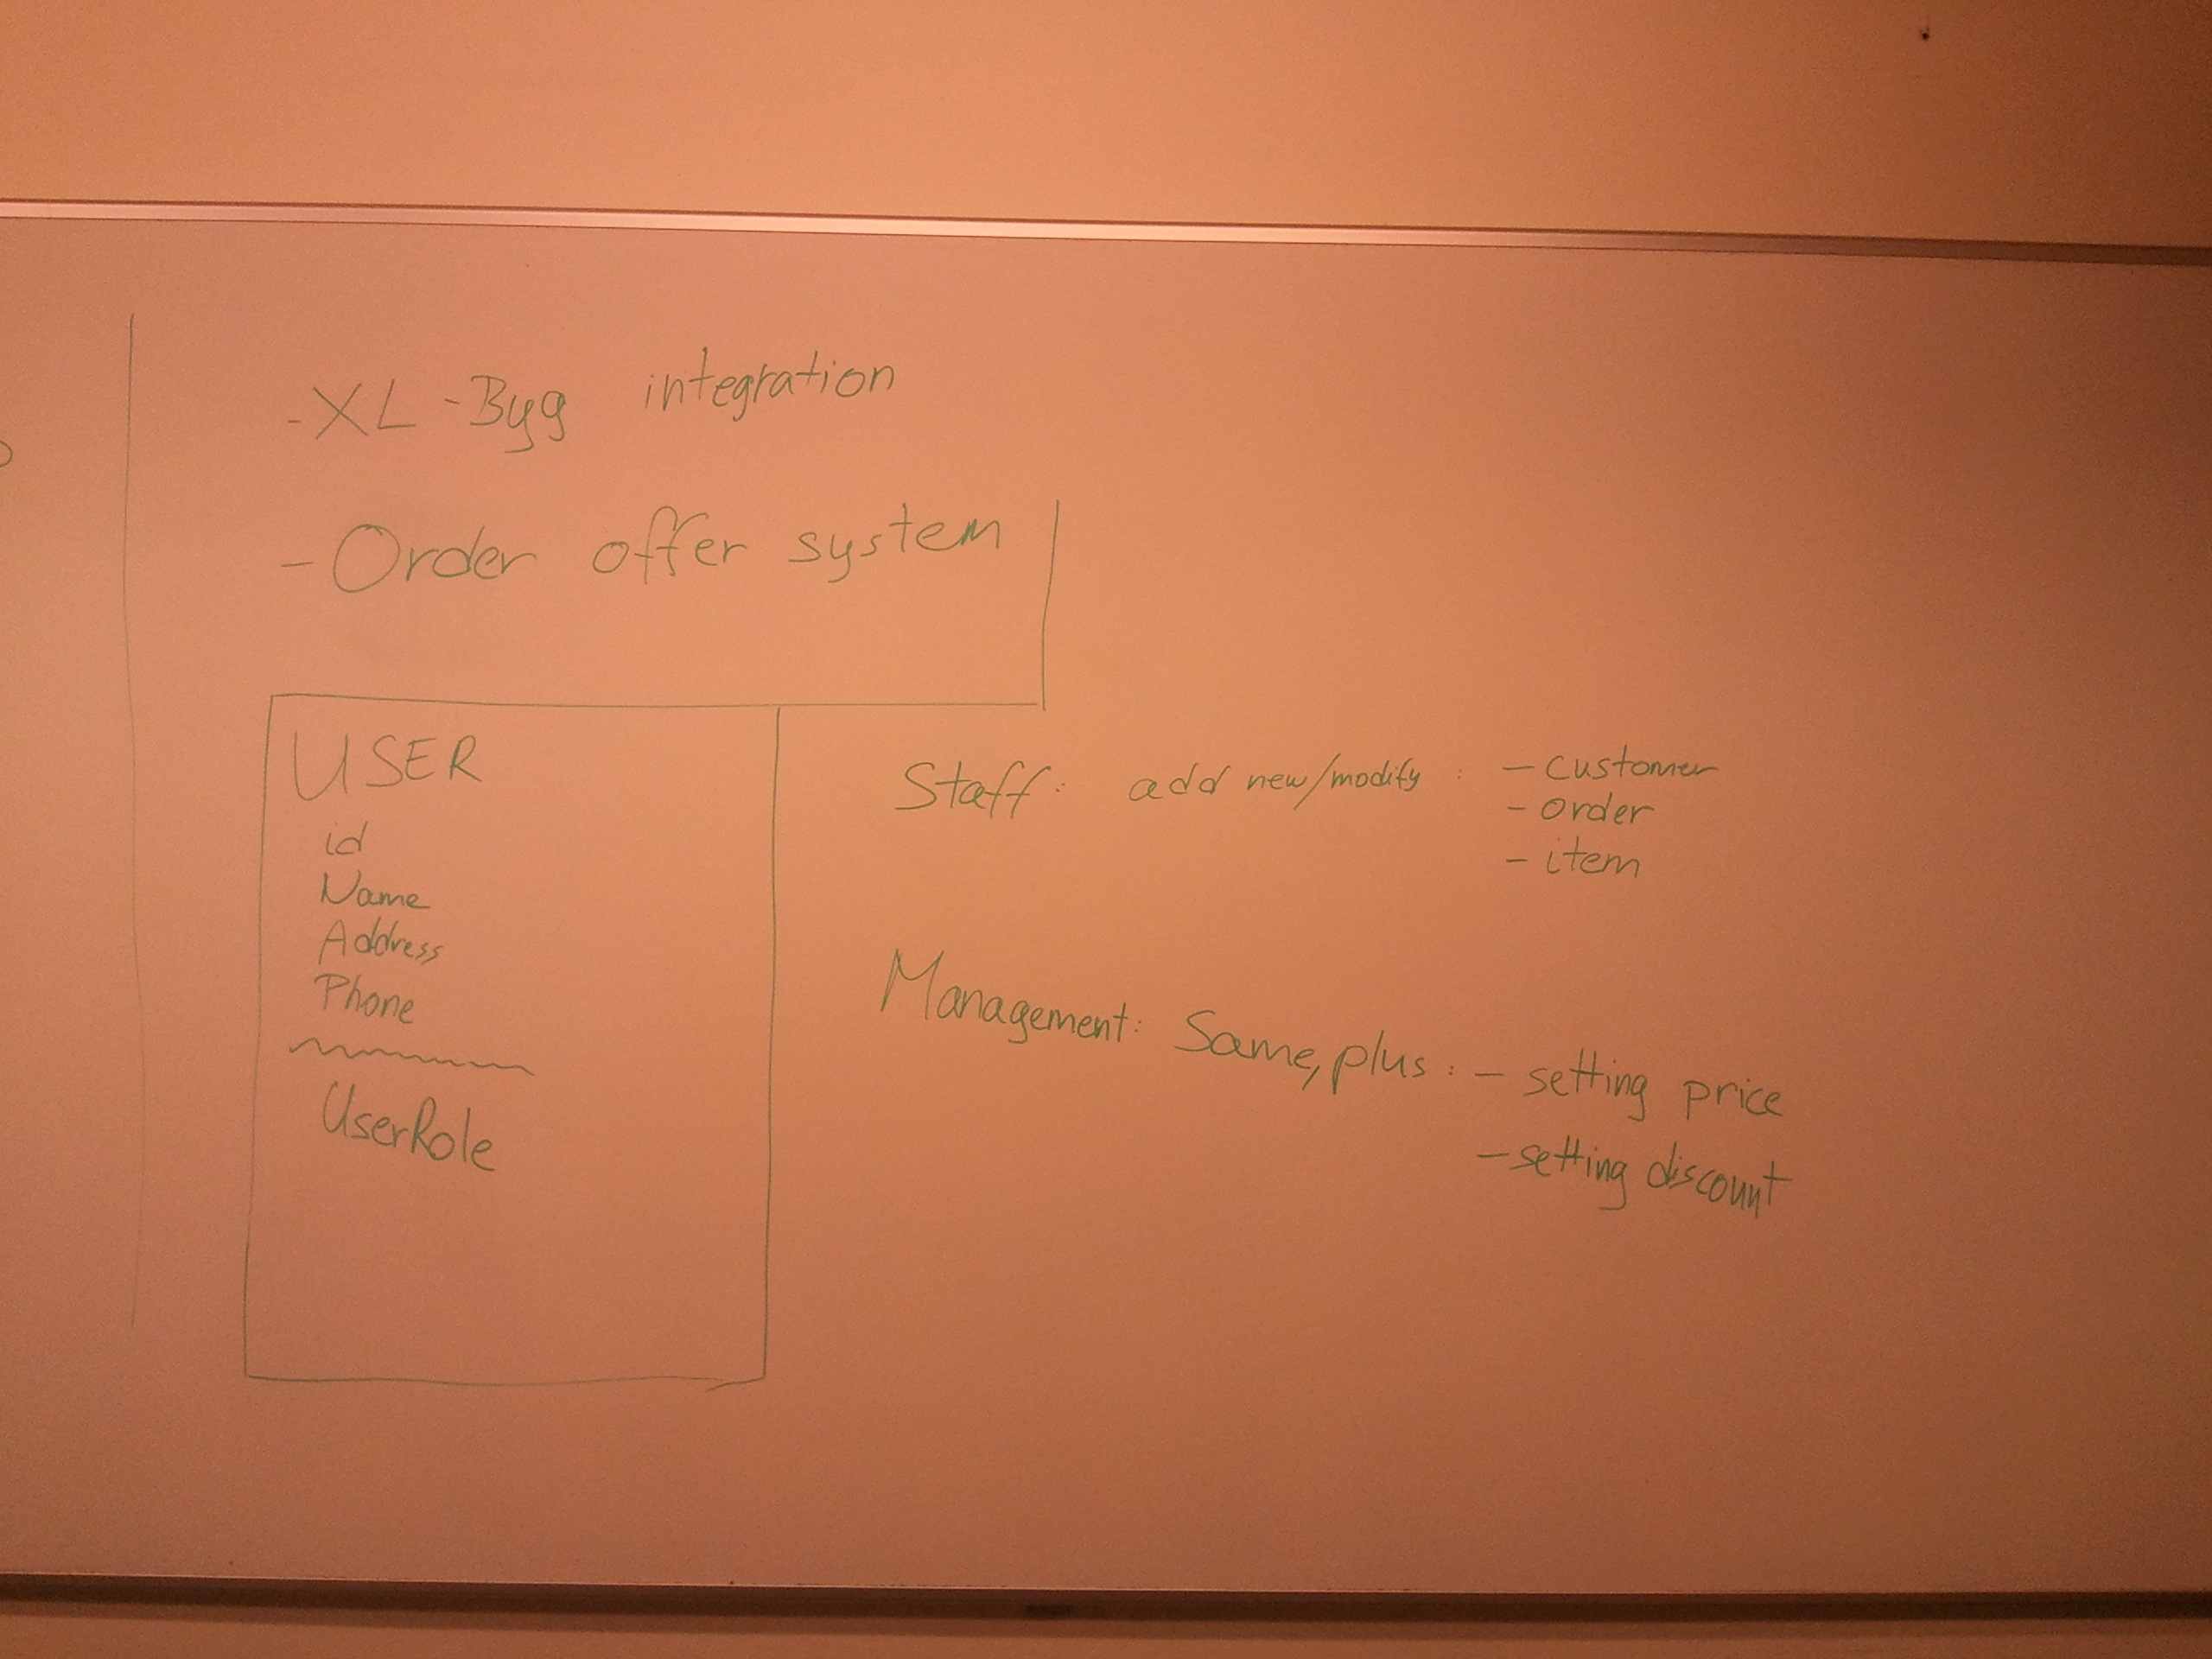 -XL-Byg integration
- Order offer system
USER
id
Name
Address
Phone
UserRole
Staff: add new/modify : - customer
- order
- item
Management: Same, plus : - setting price
- setting discount